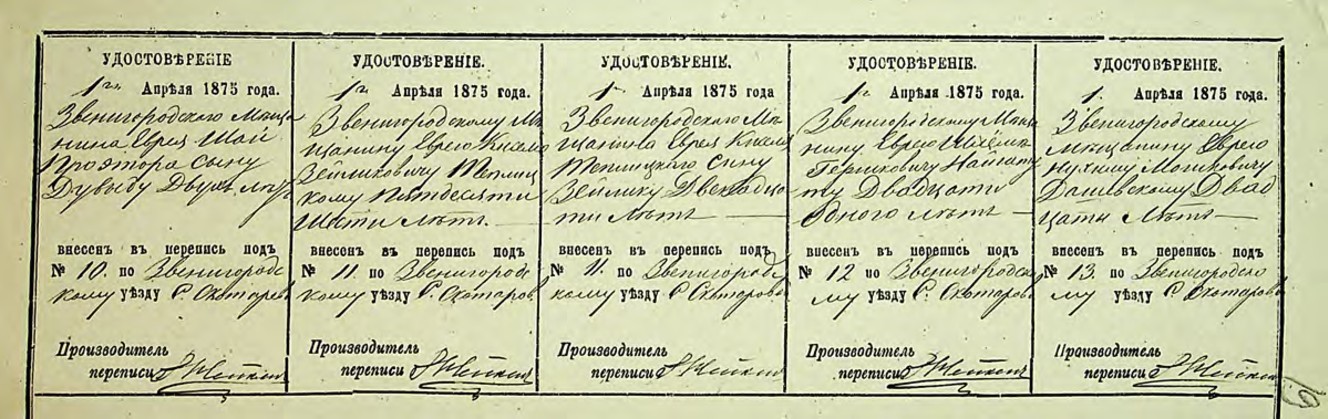 УДОСТОВѢРЕНІЕ
1го Апрѣля 1875 года.
Звенигородского Мѣща
нина Еврея Шаи
сыну
Дувыду Двухъ лѣтъ
внесенъ въ перепись подъ
№ 10. по Звенигородс
кому уѣзду С. Скотарев
Производитель
переписи
УДОСТОВѢРЕНІЕ.
1го Апрѣля 1875 года.
Звенигородскому Мѣ
щанину Еврею Кисилю
Зейликовичу Теплиц
кому Пятидесяти
Шести лѣтъ.
внесенъ въ перепись подъ
№ 11. по Звенигородс
кому уѣзду С. Скотарев
Производитель
переписи
УДОСТОВѢРЕНІЕ.
1го Апрѣля 1875 года.
Звенигородского Мѣ
щанина Еврея Кисиля
Теплицкого сыну
Зейлику Двенадца
ти лѣтъ
внесенъ въ перепись подъ
№ 11. по Звенигородс
кому уѣзду С. Скотарев
Производитель
переписи
УДОСТОВѢРЕНІЕ.
1го Апрѣля 1875 года.
Звенигородскому Мѣща
нину Еврею
Гершковичу
Двадцати
Одного лѣтъ
внесенъ въ перепись подъ
№ 12 по Звенигородско
му уѣзду С. Скотарев
Производитель
переписи
УДОСТОВѢРЕНІЕ.
1 Апрѣля 1875 года.
Звенигородскому
Мѣщанину Еврею
Нухиму Мошковичу
Дашевскому Двад
цати лѣтъ
внесенъ въ перепись подъ
№ 13. по Звенигородско
му уѣзду С. Скотарев
Производитель
переписи